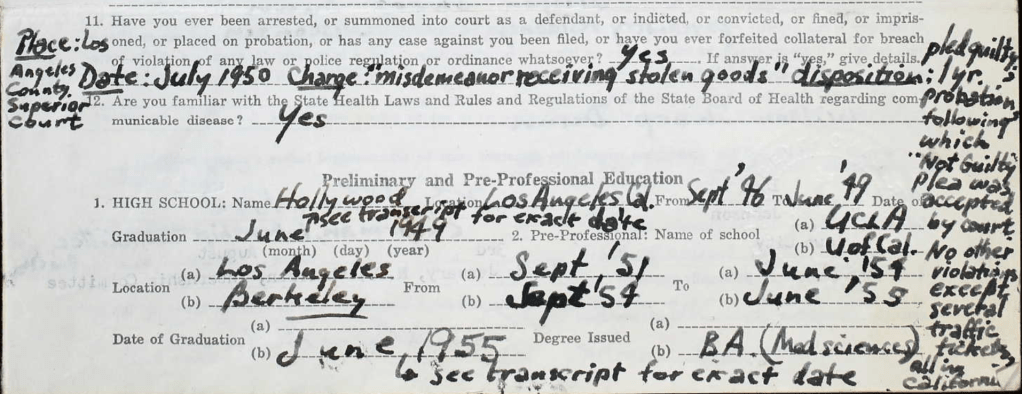 11. Have you ever been arrested, or summoned into court as a defendant, or indicted, or convicted, or fined, or impris-
oned, or placed on probation, or has any case against you been filed, or have you ever forfeited collateral for breach
of violation of any law or police regulation or ordinance whatsoever? Yes If answer is "yes," give details.
Place: Los
Angeles
County,
Superior
Court
Date: July 1950 Charge: "misdemeanor receiving stolen goods" disposition:
pled guilty,
1 yr.
probation
following
which
"Not Guilty"
Plea was
accepted
by court
No other
violations
except
several
traffic
tickets,
all in
California
12. Are you familiar with the State Health Laws and Rules and Regulations of the State Board of Health regarding com-
municable disease? Yes
Preliminary and Pre-Professional Education
1. HIGH SCHOOL: Name Hollywood Location Los Angeles Cal. From Sept '46 To June '49 Date of
see transcript for exact date
Graduation June 1949 2. Pre-Professional: Name of school (a) UCLA
(month) (day) (year) (b) U of Cal.
Location (a) Los Angeles From (a) Sept '51 To (a) June '54
(b) Berkeley (b) Sept '54 (b) June '55
Date of Graduation (a) Degree Issued (a)
(b) June, 1955 (b) BA. (Med sciences)
see transcript for exact date